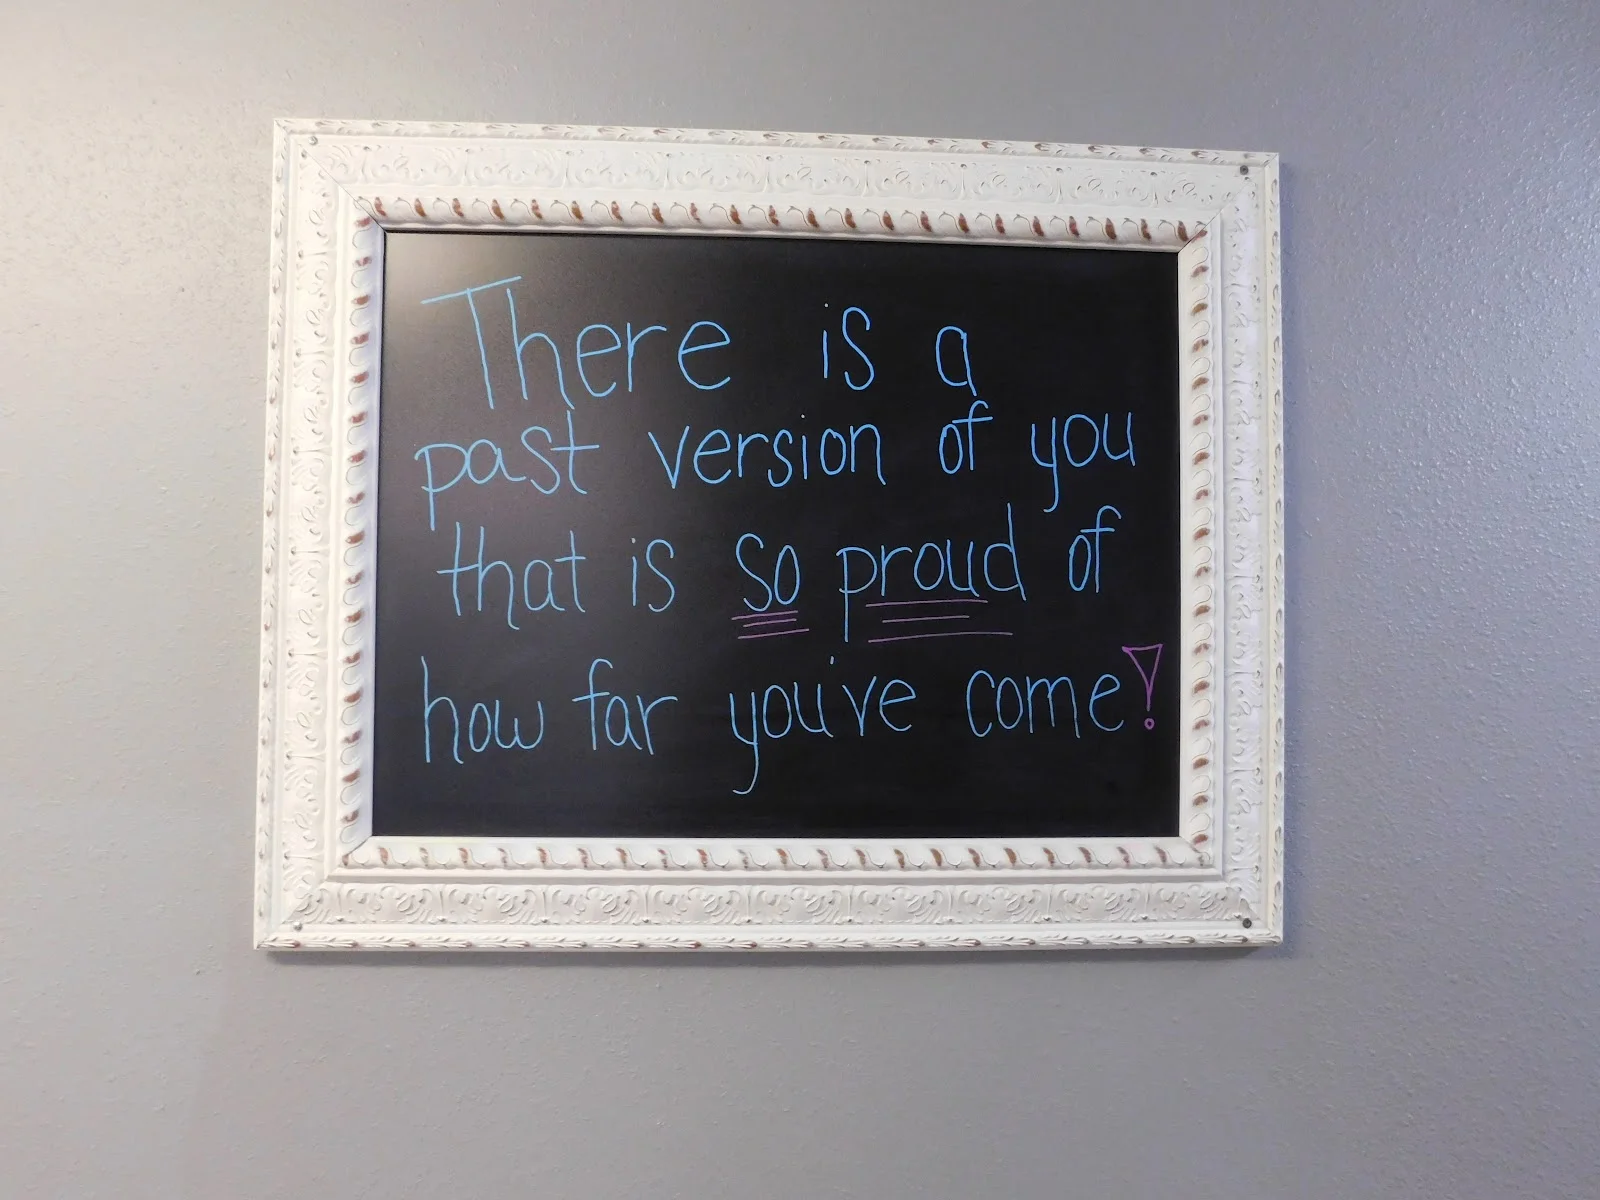 There is a
past version of you
that is so proud of
how far you've come!